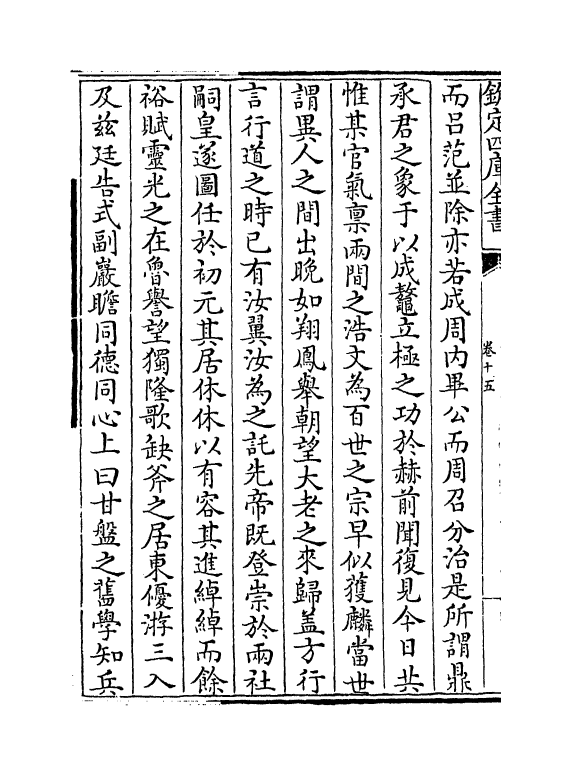 欽定四庫全書
卷十五
而呂范並除亦若成周内畢公而周召分治是所謂鼎
承君之象于以成鼇立極之功於赫前聞復見今日共
惟某官氣禀兩間之浩文為百世之宗早似獲麟當世
謂異人之間出晚如翔鳳舉朝望大老之來歸盖方行
言行道之時已有汝翼汝為之託先帝既登崇於兩社
嗣皇遂圖任於初元其居休休以有容其進綽綽而餘
裕賦靈光之在魯譽望獨隆歌缺斧之居東優游三入
及兹廷告式副巖瞻同德同心上曰甘盤之舊學知兵